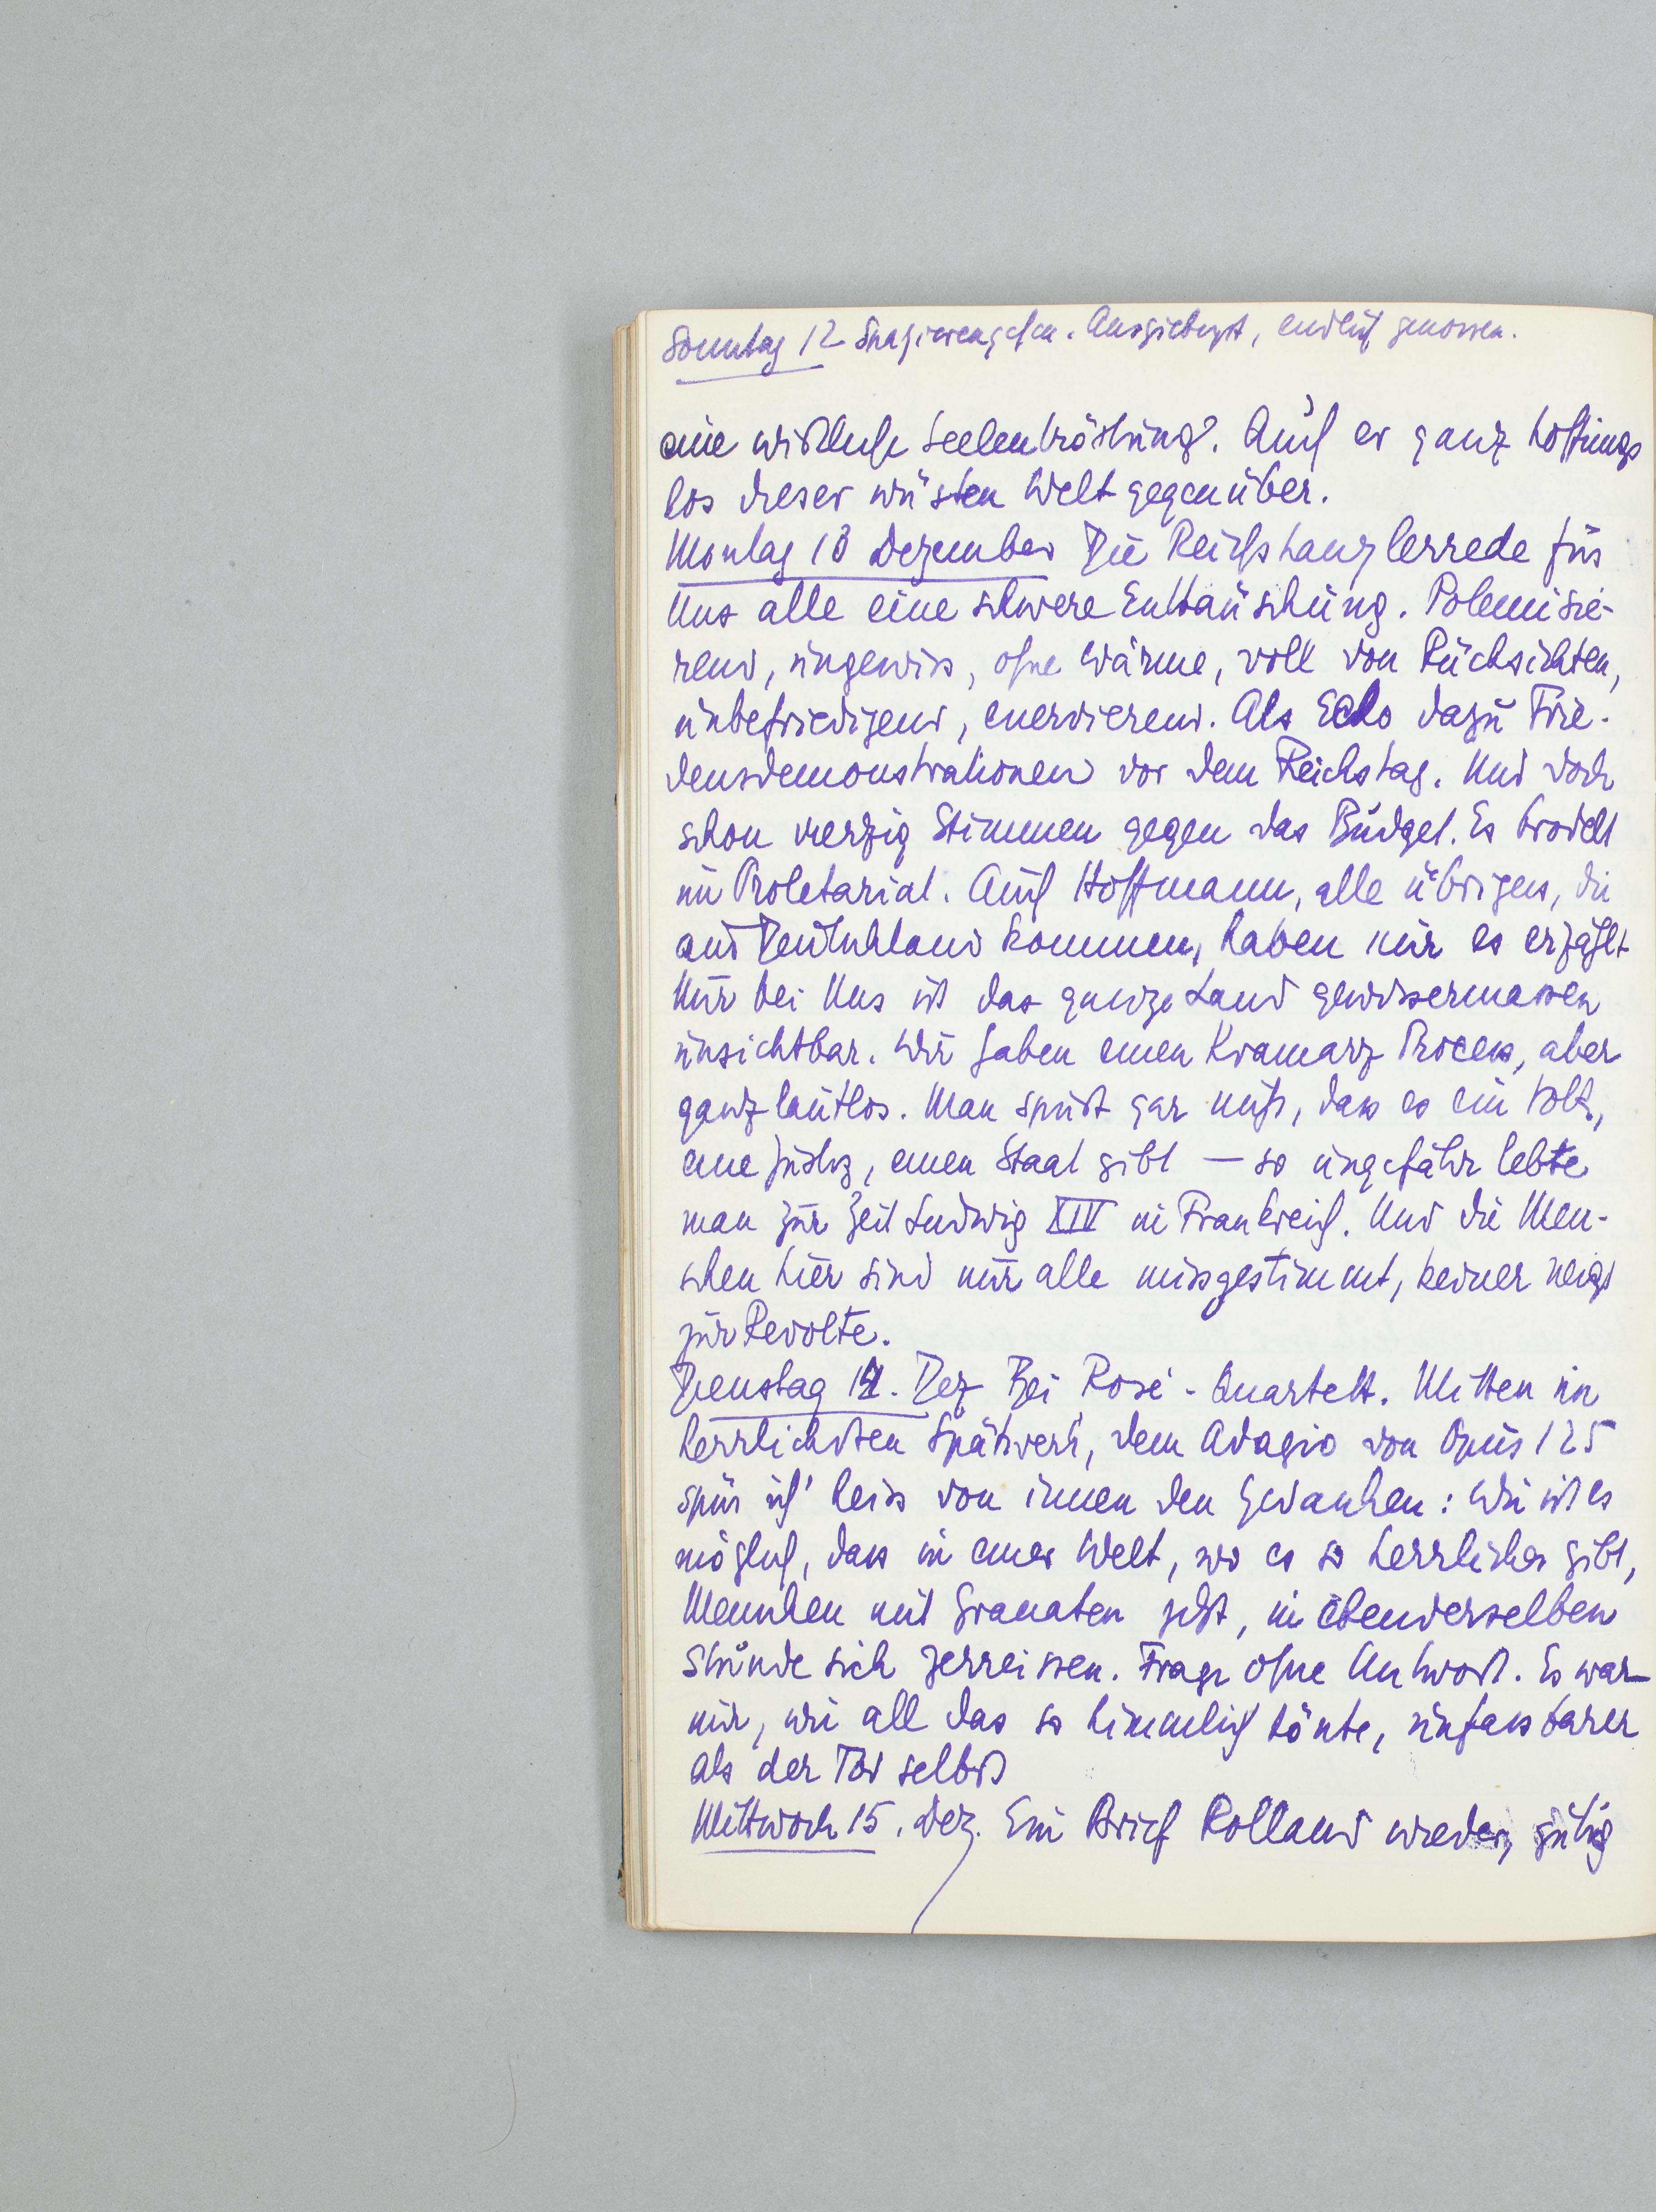 Sonntag 12 Spazierengehen. Ausgiebigst, endlich genossen.
eine wirkliche Seelentröstung. Auch er ganz hoffnungs
los dieser wüsten Welt gegenüber.
Montag 13 Dezember Die Reichskanzlerrede für
Uns alle eine schwere Enttäuschung. Polemisie-
rend, ungewiss, ohne Wärme, voll von Rücksichten,
unbefriedigend, enervierend. Als Echo dazu Frie-
densdemonstrationen vor dem Reichstag. Und doch
schon vierzig Stimmen gegen das Budget. Es brodelt
im Proletariat. Auch Hoffmann, alle übrigens, die
aus Deutschland kommen, haben mir es erzählt
Nur bei Uns ist das ganze Land gewissermassen
unsichtbar. Wir haben einen Kramarz Process, aber
ganz lautlos. Man spürt gar nichts, dass es ein Volk,
eine Justiz, einen Staat gibt — so ungefähr lebte
man zur Zeit Ludwig XIV in Frankreich. Und die Men-
schen hier sind nur alle missgestimmt, keiner neigt
zur Revolte.
Dienstag 14. Dez Bei Rosé-Quartett. Mitten im
herrlichsten Spätwerk, dem Adagio von Opus 125
spür ich' heiss von innen den Gedanken: Wie ist es
möglich, dass in einer Welt, wo es so Herrliches gibt,
Menschen mit Granaten jetzt, in ebenderselben
Stunde sich zerreissen. Frage ohne Antwort. Es war
mir, wie all das so himmlisch tönte, unfassbarer
als der Tod selbst
Mittwoch 15. Dez. Ein Brief Rolland wieder, gütig